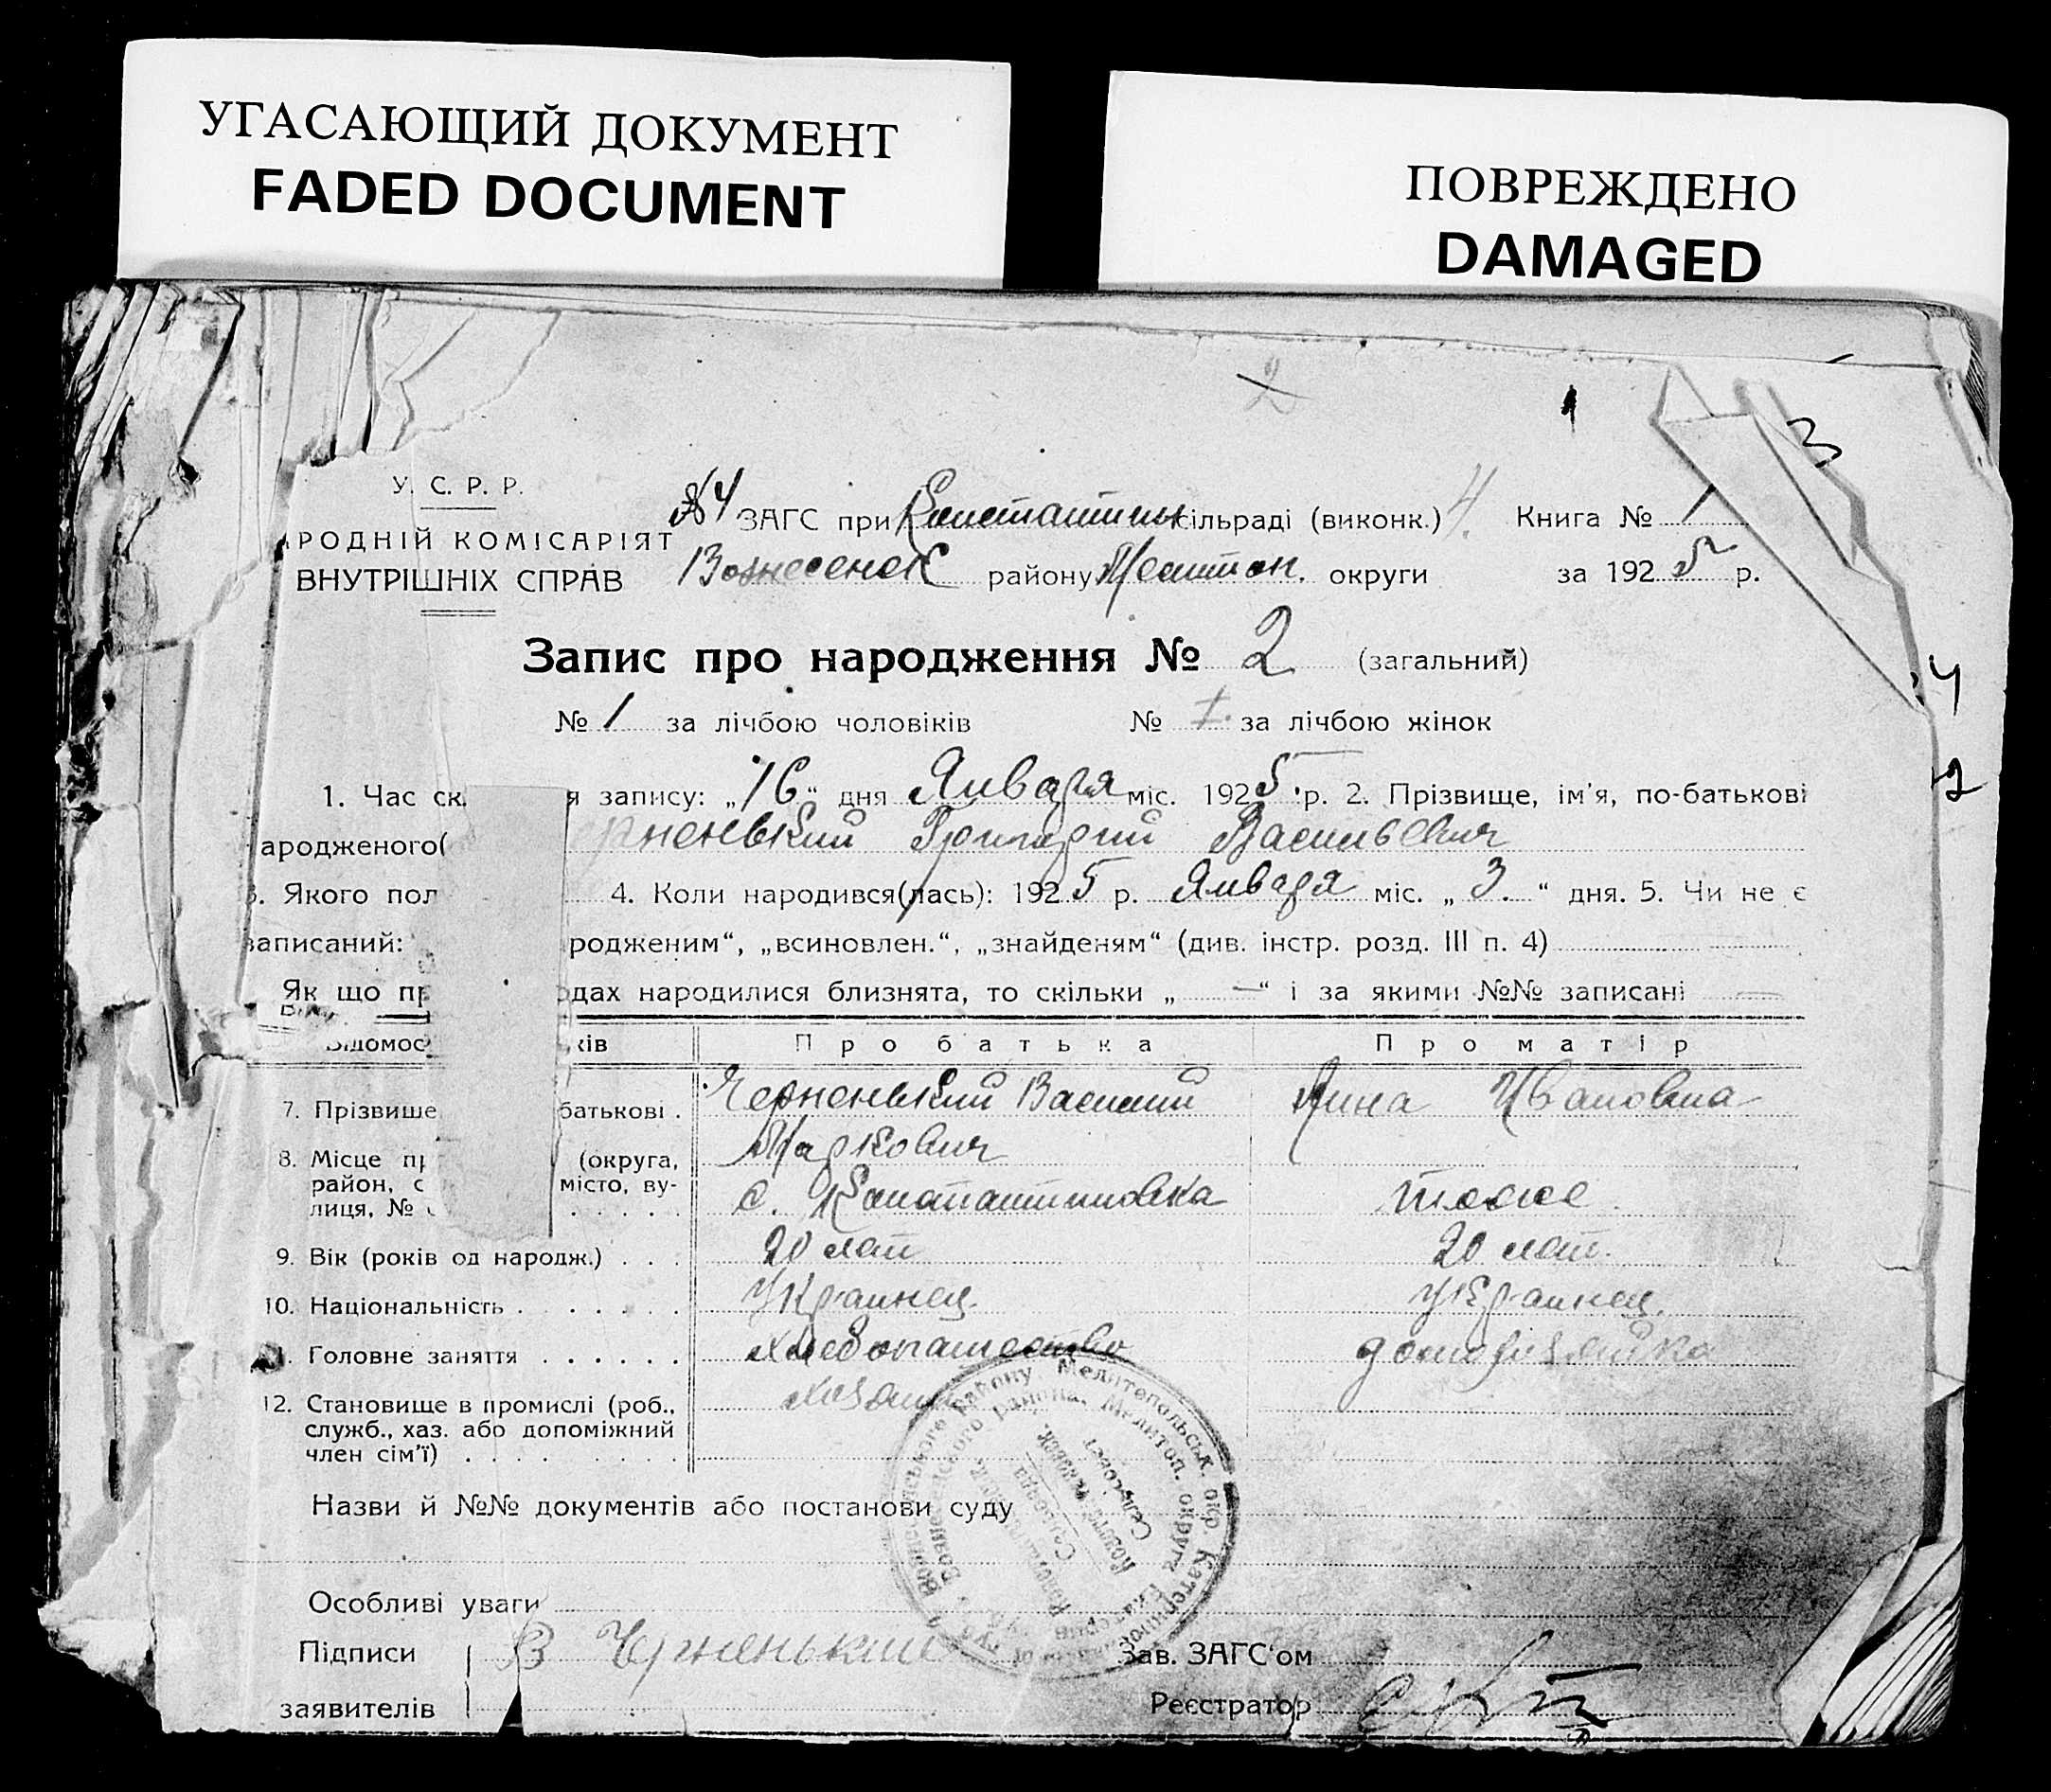 УГАСАЮЩИЙ ДОКУМЕНТ
FADED DOCUMENT
ПОВРЕЖДЕНО
DAMAGED
2
3
У. С. Р. Р.
РОДНІЙ КОМІСАРІЯТ
ВНУТРІШНІХ СПРАВ
№4 ЗАГС при Константин сільраді (виконк.) 4. Книга № 1
Вознесенск району Мелитоп. округи за 1925 р.
Запис про народження № 2 (загальний)
№ 1 за лічбою чоловіків № 1. за лічбою жінок
4
2
1. Час ск я запису: „16“ дня Января міс. 1925 р. 2. Прізвище, ім'я, по-батькові
ародженого( ерненький Григорий Васильевич
3. Якого пол 4. Коли народився(лась): 1925 р. Января міс. „3.“ дня. 5. Чи не є
записаний: родженим“, „всиновлен.“, „знайденям“ (див. інстр. розд. III п. 4)
Як що пр одах народилися близнята, то скільки „ — “ і за якими №№ записані —
Відомос ків Про батька Про матір
7. Прізвище батькові . Черненький Василий Анна Ивановна
Маркович
8. Місце пр (округа,
район, с місто, ву- с. Константиновка тоже
лиця, №
9. Вік (років од народж.) . . . 20 лет 20 лет.
10. Національність . . . . . . . Украинец. Украинец.
11. Головне заняття . . . . . . хлебопашество домохозяйка
12. Становище в промислі (роб., хозяин
служб., хаз. або допоміжний
член сім'ї) . . . . . . . .
Назви й №№ документів або постанови суду
Особливі уваги
Підписи В Черненький Зав. ЗАГС'ом
заявителів Реєстратор